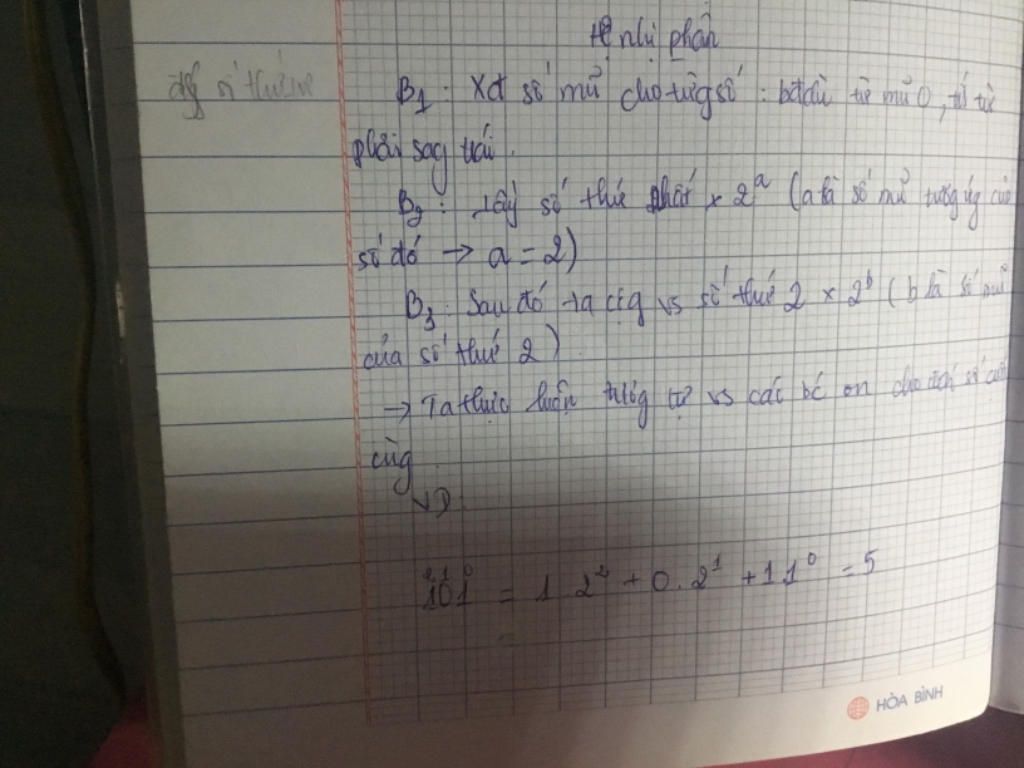 Hệ nhị phân
B1: Xđ số mũ cho từg số: bắt đầu từ mũ 0, từ
phải sag trái.
B2: Lấy số thứ nhất × 2^a (a là số mũ tươg ứg của
số đó → a = 2)
B3: Sau đó ta cộg vs số thứ 2 × 2^b (b là số mũ
của số thứ 2)
→ Ta thực tươg tự vs các số cuối
cùg
VD:
1²0¹1⁰ = 1 2² + 0. 2¹ + 1 1⁰ = 5
HÒA BÌNH